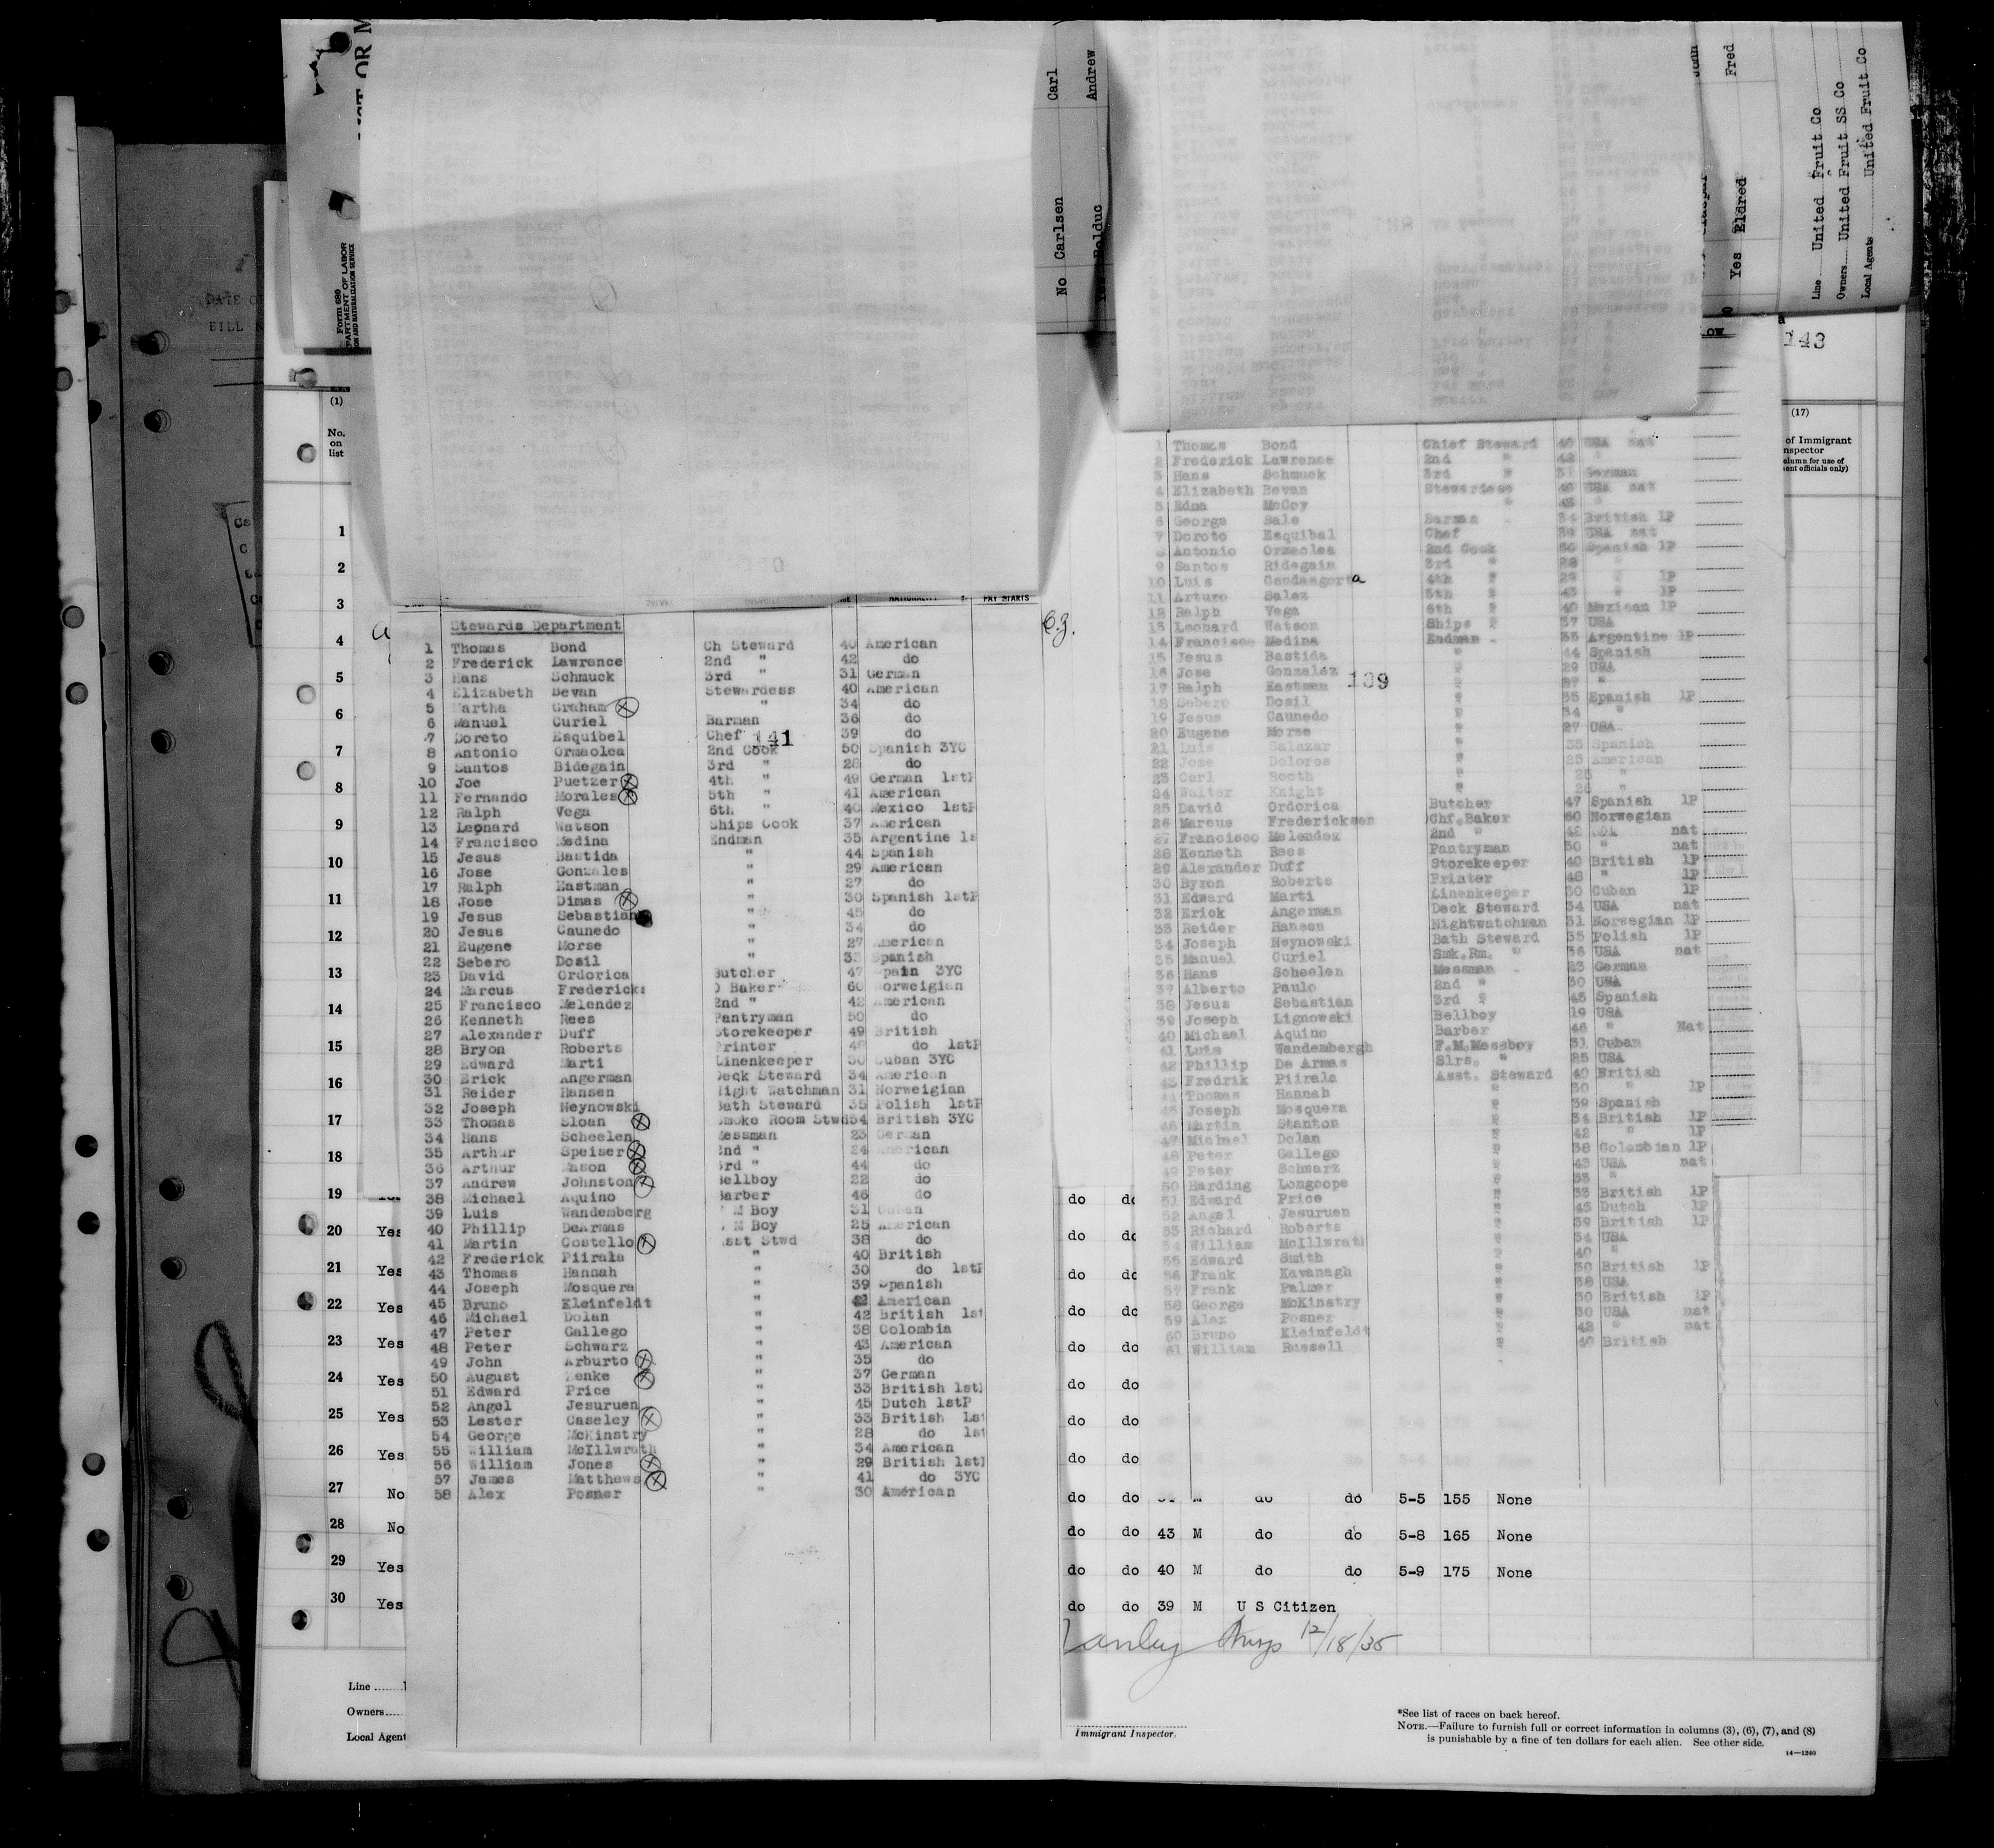 LIST OR M
Form 680
DEPARTMENT OF LABOR
Carl
Andrew
No Carlsen
Bolduc
John
Fred
Yes Eldred
Line United Fruit Co
Owners United Fruit SS Co
Local Agents United Fruit Co
143
(1)
No. on list
(17)
of Immigrant
nspector
olumn for use of
ent officials only)
NATIONALITY PAY STARTS
Stewards Department
1 Thomas Bond Ch Steward 40 American
2 Frederick Lawrence 2nd " 42 do
3 Hans Schmuck 3rd " 31 German
4 Elizabeth Bevan Stewardess 40 American
5 Martha Graham " 34 do
6 Manuel Curiel Barman 36 do
7 Doreto Esquibel Chef 39 do
141
8 Antonio Ormaolea 2nd Cook 50 Spanish 3YC
9 Santos Bidegain 3rd " 28 do
10 Joe Puetzer 4th " 49 German 1stP
11 Fernando Morales 5th " 41 American
12 Ralph Vega 6th " 40 Mexico 1stP
13 Leonard Watson Ships Cook 37 American
14 Francisco Medina Endman 35 Argentine 1s
15 Jesus Bastida " 44 Spanish
16 Jose Gonzales " 29 American
17 Ralph Eastman " 27 do
18 Jose Dimas " 30 Spanish 1stP
19 Jesus Sebastian " 45 do
20 Jesus Caunedo " 34 do
21 Eugene Morse " 27 American
22 Sebero Dosil " 35 Spanish
23 David Ordorica Butcher 47 Spain 3YC
24 Marcus Fredericks O Baker 60 Norweigian
25 Francisco Melendez 2nd " 42 American
26 Kenneth Rees Pantryman 50 do
27 Alexander Duff Storekeeper 49 British
28 Bryon Roberts Printer 48 do 1stP
29 Edward Marti Linenkeeper 30 Cuban 3YC
30 Erick Angerman Deck Steward 34 American
31 Reider Hansen Night Watchman 31 Norweigian
32 Joseph Neynowski Bath Steward 35 Polish 1stP
33 Thomas Sloan Smoke Room Stwd 54 British 3YC
34 Hans Scheelen Messman 23 German
35 Arthur Speiser 2nd " 24 American
36 Arthur Mason 3rd " 44 do
37 Andrew Johnston Bellboy 22 do
38 Michael Aquino Barber 46 do
39 Luis Wandemberg M Boy 31 Cuban
40 Phillip DeArmas M Boy 25 American
41 Martin Costello Asst Stwd 38 do
42 Frederick Piirala " 40 British
43 Thomas Hannah " 30 do 1stP
44 Joseph Mosquera " 39 Spanish
45 Bruno Kleinfeldt " American
46 Michael Dolan " 42 British 1st
47 Peter Gallego " 38 Colombia
48 Peter Schwarz " 43 American
49 John Arburto " 35 do
50 August Zenke " 37 German
51 Edward Price " 33 British 1st
52 Angel Jesuruen " 45 Dutch 1stP
53 Lester Caseley " 33 British Lst
54 George McKinstry " 28 do 1st
55 William McIllwrath " 34 American
56 William Jones " 29 British 1st
57 James Matthews " 41 do 3YC
58 Alex Posner " 30 American
1 Thomas Bond Chief Steward 40 USA nat
2 Frederick Lawrence 2nd " 42 "
3 Hans Schmuck 3rd " 31 German
4 Elizabeth Bevan Stewardess 40 USA nat
5 Edna McCoy " 43 "
6 George Sale Barman 34 British 1P
7 Doroto Esquibal Chef 39 USA nat
8 Antonio Ormaolea 2nd Cook 50 Spanish 1P
9 Santos Bidegain 3rd " 28 "
10 Luis Gondasgorta 4th " 29 " 1P
11 Arturo Salez 5th " 43 " 1P
12 Ralph Vega 6th " 40 Mexican 1P
13 Leonard Watson Ships " 37 USA
14 Francisco Medina Endman 35 Argentine 1P
15 Jesus Bastida " 44 Spanish
16 Jose Gonzalez " 29 USA
139
17 Ralph Eastman " 27 "
18 Sebero Dosil " 35 Spanish 1P
19 Jesus Caunedo " 34 "
20 Eugene Morse " 27 USA
21 Luis Salazar " 35 Spanish
22 Jose Dolores " 25 American
23 Carl Booth " 25 "
24 Walter Knight " 26 "
25 David Ordorica Butcher 47 Spanish 1P
26 Marcus Fredericksen Chf.Baker 60 Norwegian
27 Francisco Melendez 2nd " 42 USA nat
28 Kenneth Rees Pantryman 50 " nat
29 Alexander Duff Storekeeper 49 British 1P
30 Byron Roberts Printer 48 " 1P
31 Edward Marti Linenkeeper 30 Cuban 1P
32 Erick Angerman Deck Steward 34 USA nat
33 Reider Hansen Nightwatchman 31 Norwegian 1P
34 Joseph Neynowski Bath Steward 35 Polish 1P
35 Manuel Curiel Smk.Rm. " 36 USA nat
36 Hans Scheelen Messman 23 German
37 Alberto Paulo 2nd " 30 USA
38 Jesus Sebastian 3rd " 45 Spanish
39 Joseph Lignowski Bellboy 19 USA
40 Michael Aquino Barber 46 " Nat
41 Luis Wandembergh F.M.Messboy 31 Cuban
42 Phillip De Armas Slrs. " 25 USA
43 Fredrik Piirala Asst. Steward 40 British
44 Thomas Hannah " 30 " 1P
45 Joseph Mosquera " 39 Spanish
46 Martin Stanton " 34 British 1P
47 Michael Dolan " 42 " 1P
48 Peter Gallego " 38 Colombian 1P
49 Peter Schwarz " 43 USA nat
50 Harding Longcope " 33 "
51 Edward Price " 33 British 1P
52 Angel Jesuruen " 45 Dutch 1P
53 Richard Roberts " 39 British 1P
54 William McIllwrath " 34 USA
55 Edward Smith " 40 "
56 Frank Kavanagh " 30 British 1P
57 Frank Palmer " 38 USA
58 George McKinstry " 30 British 1P
59 Alex Posner " 30 USA nat
60 Bruno Kleinfeldt " 42 " nat
61 William Russell " 40 British
1
2
3
4
5
6
7
8
9
10
11
12
13
14
15
16
17
18
19 do
20 Yes do
21 Yes do
22 Yes do
23 Yes do do
24 Yes do do
25 Yes do do
26 Yes do do
27 No do do M do do 5-5 155 None
28 No do do 43 M do do 5-8 165 None
29 Yes do do 40 M do do 5-9 175 None
30 Yes do do 39 M U S Citizen
12/18/35
Line
Owners
Local Agent
Immigrant Inspector.
*See list of races on back hereof.
NOTE.—Failure to furnish full or correct information in columns (3), (6), (7), and (8)
is punishable by a fine of ten dollars for each alien. See other side.
14—1240